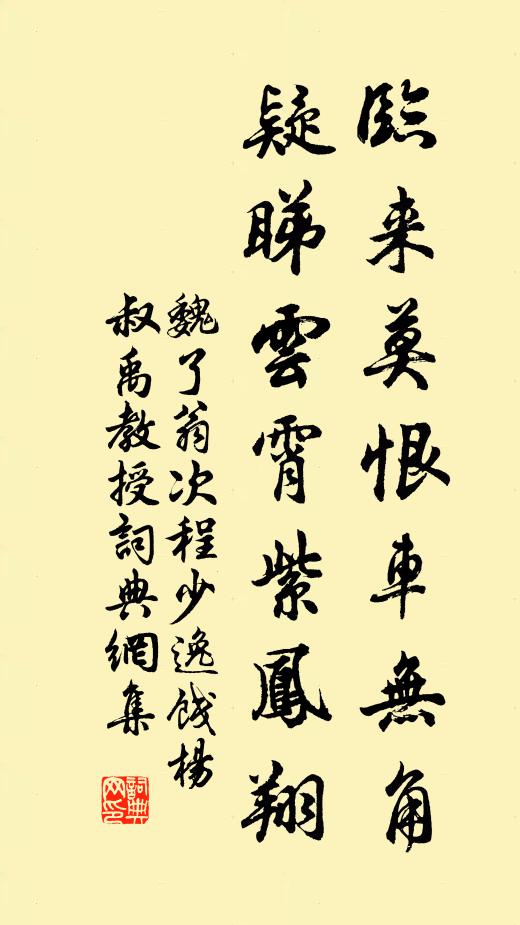 臨来莫恨車無角
疑睇雲霄紫鳳翔
魏了翁次程少逸餞楊
叔禹教授詞典網集
詞典
网印